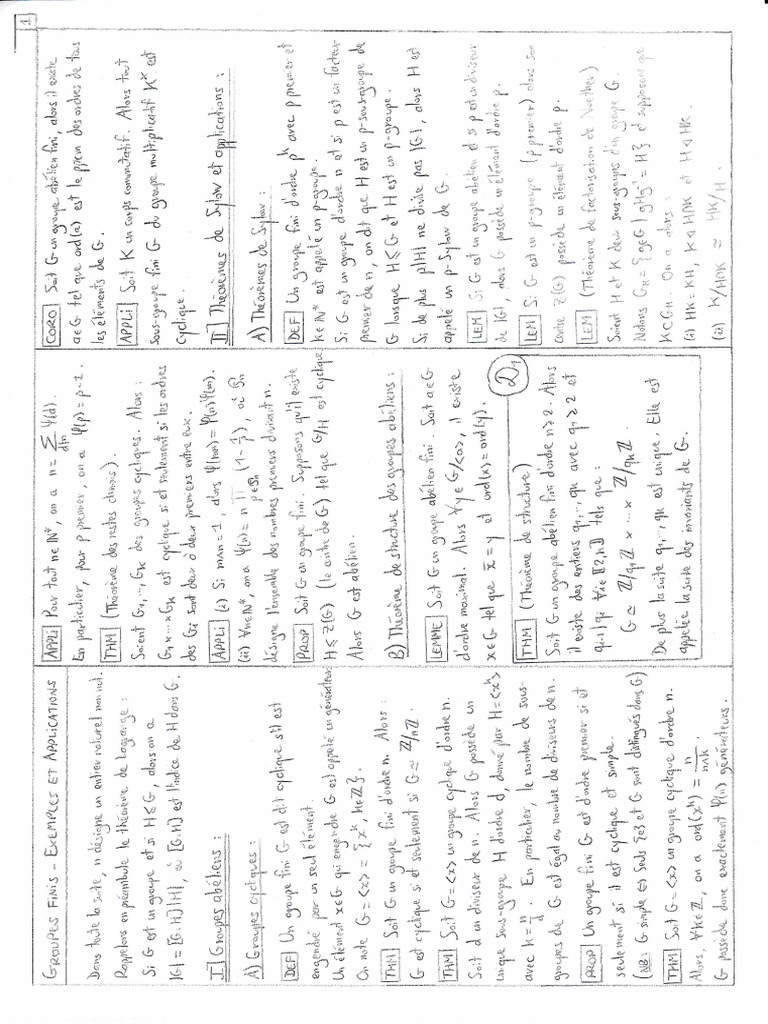 GROUPES FINIS - EXEMPLES ET APPLICATIONS
Dans toute la suite, n désigne un entier naturel non nul.
Rappelons en préambule le théorème de Lagrange :
Si G est un groupe et si H ⩽ G, alors on a
|G| = [G:H] |H|, où [G:H] est l'indice de H dans G.
I] Groupes abéliens :
A) Groupes cycliques :
DEF Un groupe fini G est dit cyclique s'il est
engendré par un seul élément.
Un élément x∈G qui engendre G est appelé un générateur.
On note G = <x> = {x^k, k∈ℤ}.
THM Soit G un groupe fini d'ordre n. Alors :
G est cyclique si et seulement si G ≃ ℤ/nℤ
THM Soit G = <x> un groupe cyclique d'ordre n.
Soit d un diviseur de n. Alors G possède un
unique sous-groupe H d'ordre d, donné par H = <x^k>
avec k = n/d. En particulier, le nombre de sous-
groupes de G est égal au nombre de diviseurs de n.
PROP Un groupe fini G est d'ordre premier si et
seulement si il est cyclique et simple.
(NB: G simple ⇔ Seuls {e} et G sont distingués dans G)
THM Soit G = <x> un groupe cyclique d'ordre n.
Alors, ∀k∈ℤ, on a ord(x^k) = n/(n∧k)
G possède donc exactement φ(n) générateurs.
APPLI Pour tout n∈ℕ*, on a n = Σ_{d|n} φ(d).
En particulier, pour p premier, on a φ(p) = p-1.
THM (Théorème des restes chinois).
Soient G₁,...,G_k des groupes cycliques. Alors :
G₁×...×G_k est cyclique si et seulement si les ordres
des G_i sont deux à deux premiers entre eux.
APPLI (i) Si m∧n=1, alors φ(mn) = φ(n)φ(m).
(ii) ∀n∈ℕ*, on a φ(n) = n ∏_{p∈P_n} (1 - 1/p), où P_n
désigne l'ensemble des nombres premiers divisant n.
PROP Soit G un groupe fini. Supposons qu'il existe
H ⩽ Z(G) (le centre de G) tel que G/H est cyclique
Alors G est abélien.
B) Théorème de structure des groupes abéliens :
LEMME Soit G un groupe abélien fini. Soit a∈G
d'ordre maximal. Alors ∀y∈G/<a>, il existe
x∈G tel que x̄ = y et ord(x) = ord(y).
D₁
THM (Théorème de structure)
Soit G un groupe abélien fini d'ordre n ⩾ 2. Alors
il existe des entiers q₁,..., q_k avec q₁ ⩾ 2 et
q_{i-1} | q_i ∀i∈⟦2,k⟧ tels que :
G ≃ ℤ/q₁ℤ × ... × ℤ/q_kℤ
De plus la suite q₁,..., q_k est unique. Elle est
appelée la suite des invariants de G.
1
CORO Soit G un groupe abélien fini, alors il existe
a∈G tel que ord(a) est le ppcm des ordres de tous
les éléments de G.
APPLI Soit K un corps commutatif. Alors tout
sous-groupe fini G du groupe multiplicatif K* est
cyclique.
II] Théorèmes de Sylow et applications :
A) Théorèmes de Sylow :
DEF Un groupe fini d'ordre p^k avec p premier et
k∈ℕ* est appelé un p-groupe.
Si G est un groupe d'ordre n et si p est un facteur
premier de n, on dit que H est un p-sous-groupe de
G lorsque H ⩽ G et H est un p-groupe.
Si de plus p|H| ne divise pas |G|, alors H est
appelé un p-Sylow de G.
LEM Si G est un groupe abélien et si p est un diviseur
de |G| alors G possède un élément d'ordre p.
LEM Si G est un p-groupe (p premier) alors son
centre Z(G) possède un élément d'ordre p.
LEM (Théorème de factorisation de Noether)
Soient H et K deux sous-groupes d'un groupe G.
Notons G_H = {g∈G | gHg⁻¹ = H} et supposons que
K⊂G_H. On a alors :
(i) HK = KH, K∩H ◁ K et H ◁ HK.
(ii) K/H∩K ≃ HK/H.